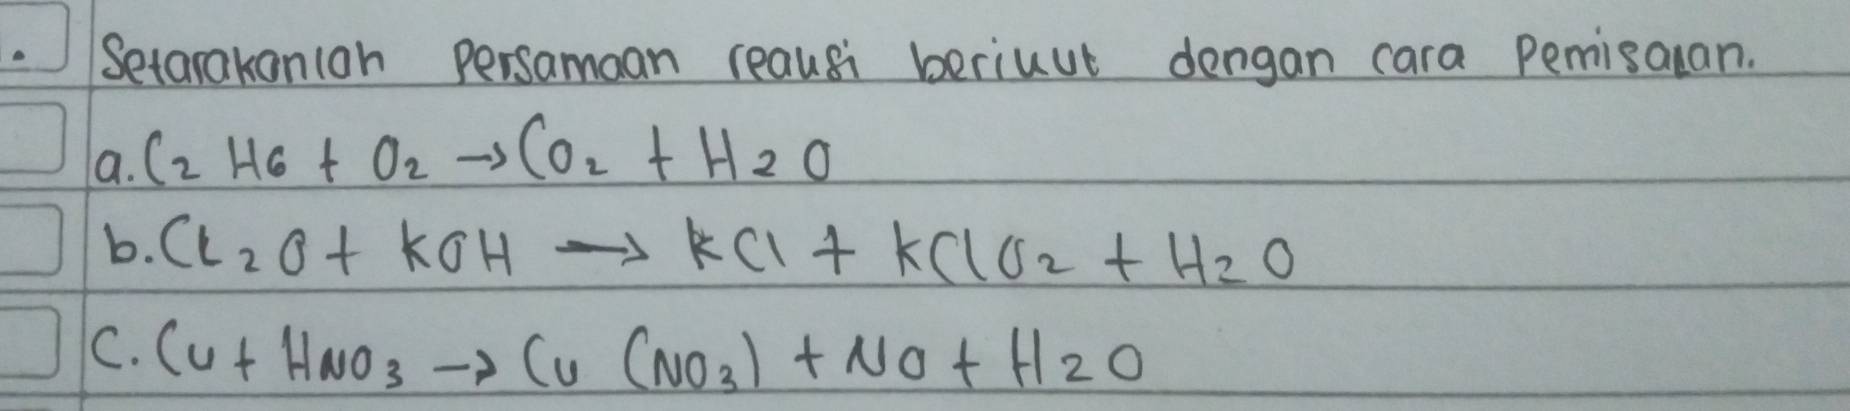 . Setarakanlah Persamaan reaksi berikut dengan cara Pemisalan.
a. C2 H6 + O2 → CO2 + H2O
b. Cl2O + KOH → KCl + KClO2 + H2O
C. Cu + HNO3 → Cu (NO3) + NO + H2O